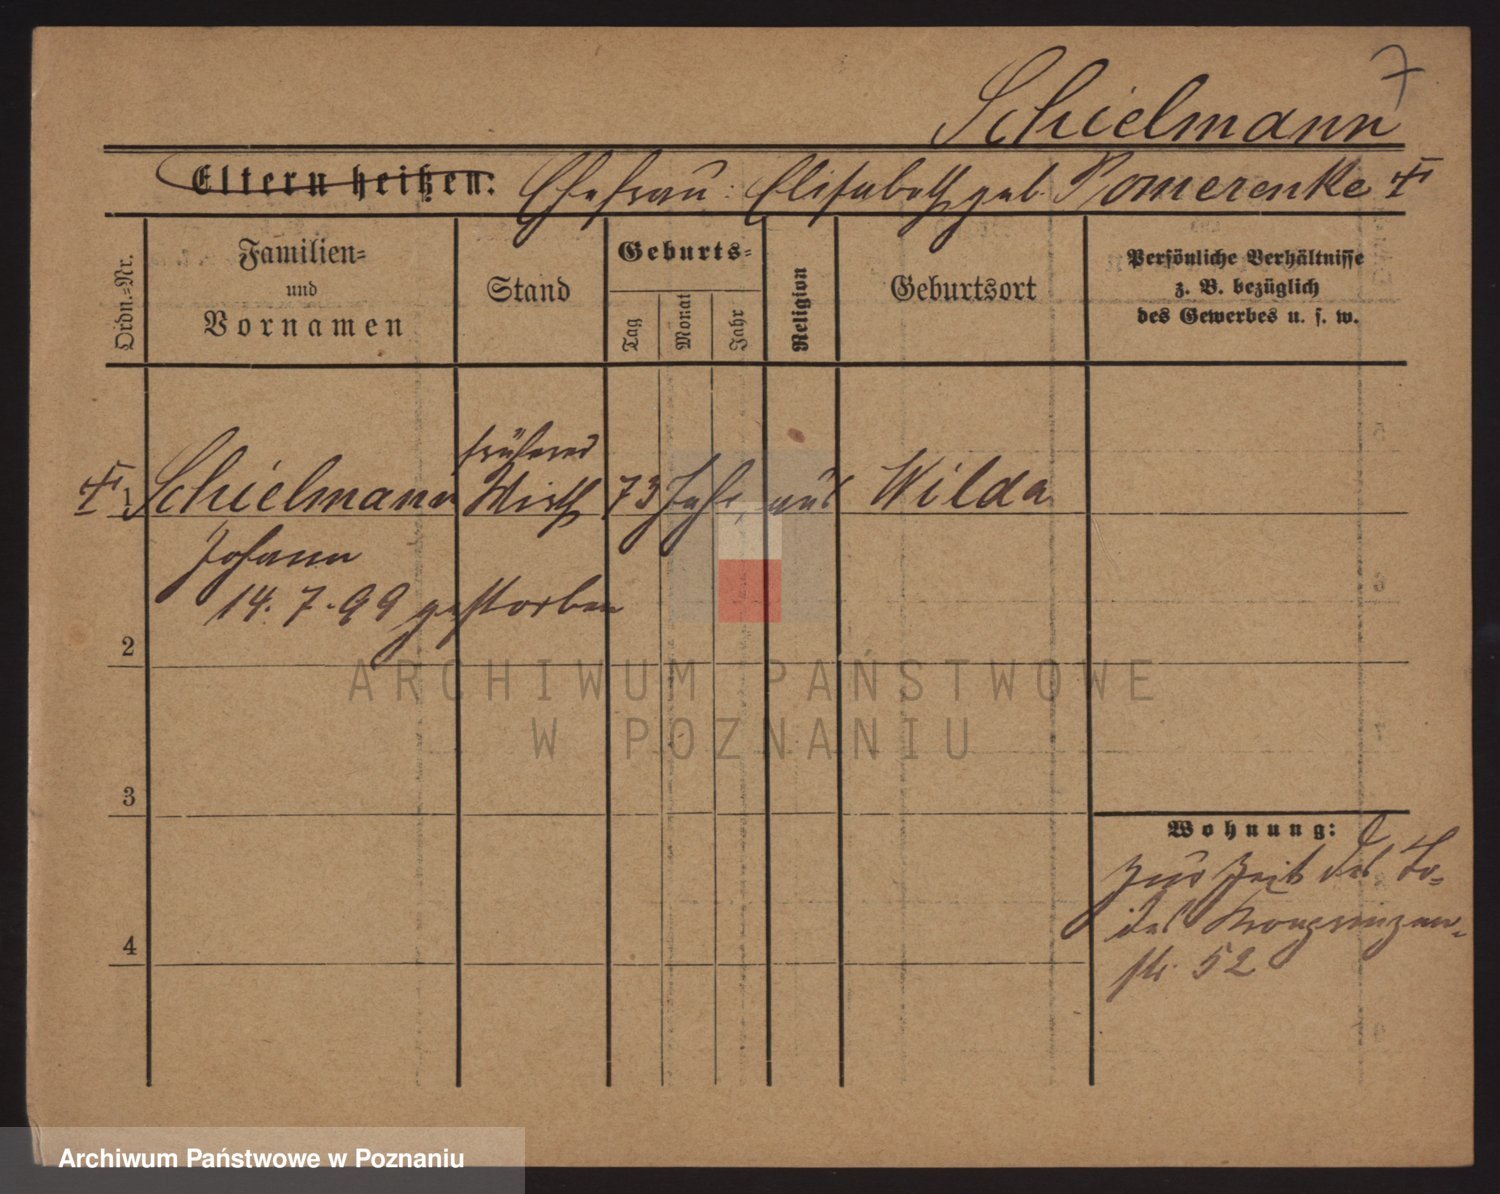 7
Schielmann
Eltern heißen: Ehefrau: Elisabeth geb. Pomerenke
Ordn.-Nr.
Familien-
und
Vornamen
Stand
Geburts-
Tag
Monat
Jahr
Religion
Geburtsort
Persönliche Verhältnisse
z. B. bezüglich
des Gewerbes u. s. w.
früherer
1 Schielmann Wirth 73 Jahr, aus Wilda
Johann
14. 7. 99 gestorben
2
ARCHIWUM PAŃSTWOWE
W POZNANIU
3
Wohnung:
zur Zeit des To-
des Kronprinzen-
str. 52
4
Archiwum Państwowe w Poznaniu